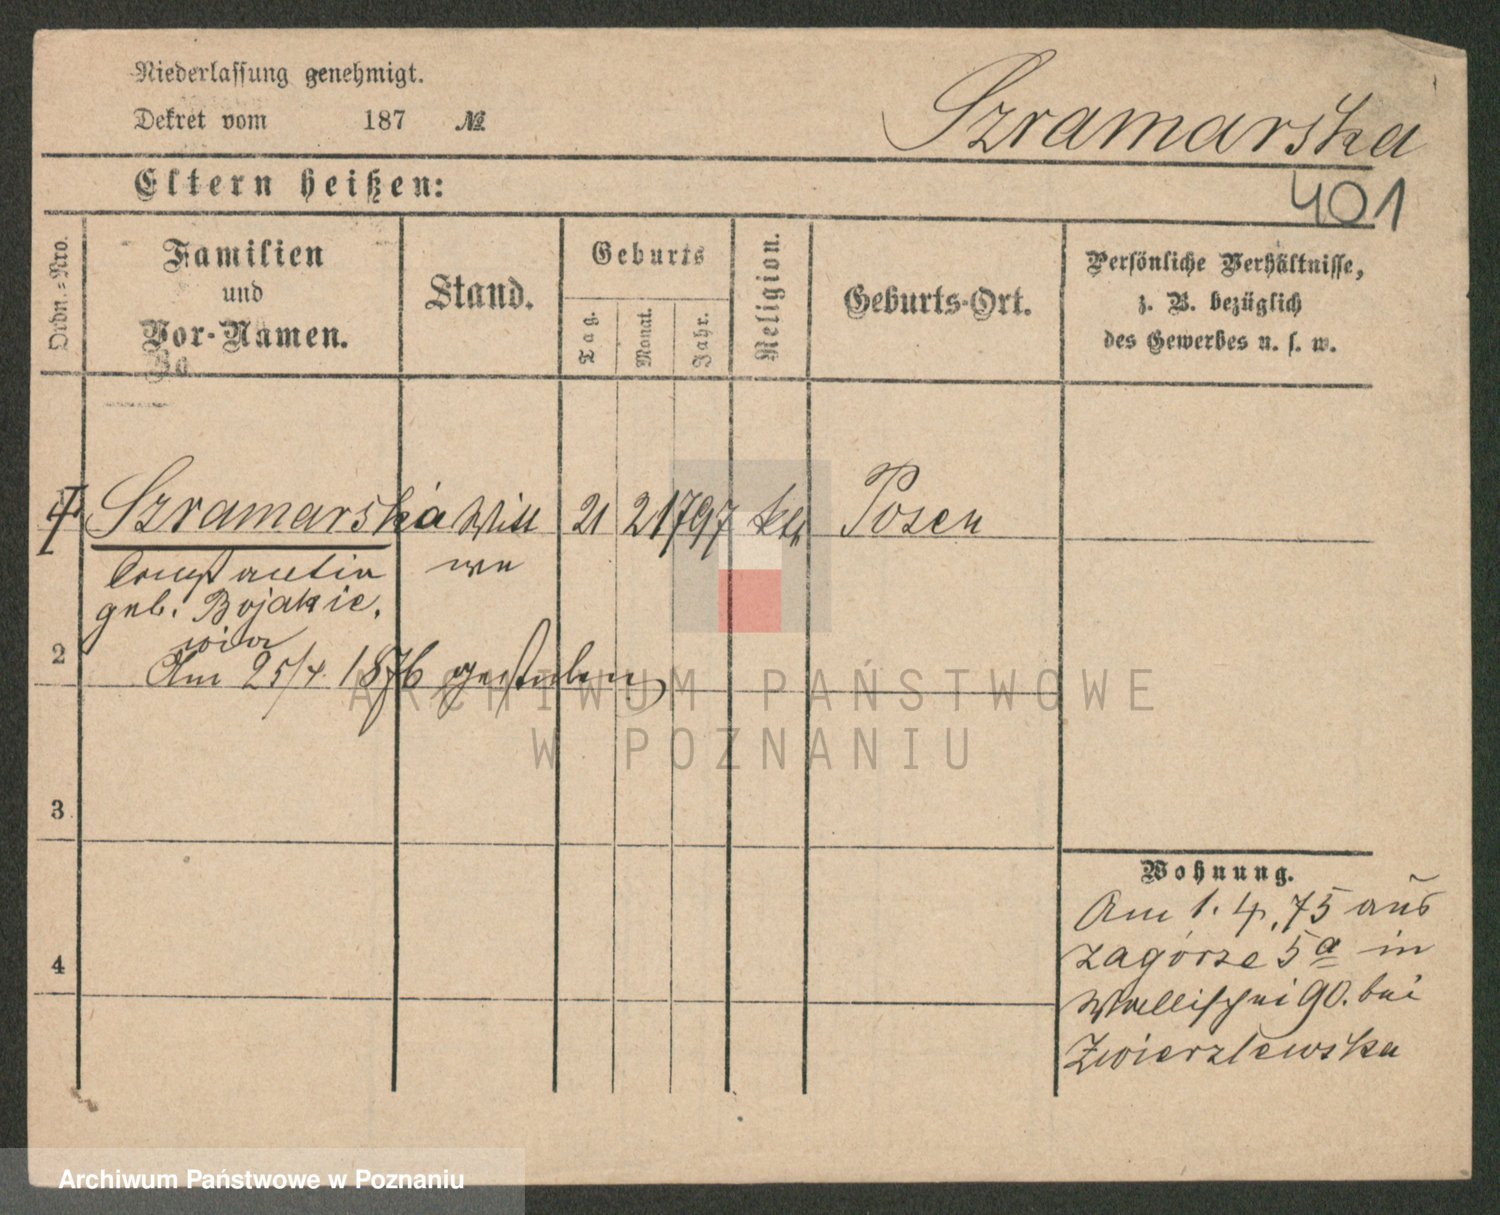 Niederlassung genehmigt.
Dekret vom 187 №
Szramarska
Eltern heißen:
401
Ordn.=Nro.
Familien
und
Vor-Namen.
Stand.
Geburts
Tag.
Monat.
Jahr.
Religion.
Geburts-Ort.
Persönliche Verhältnisse,
z. B. bezüglich
des Gewerbes u. s. w.
Szramarska Witt 21 2 1797 kth Posen
Constantia we
geb. Bojakie.
wicz
2
Am 25/4. 1876 gestorben
3
4
Wohnung.
Am 1. 4. 75 aus
Zagórze 5a in
Wallischei 90. bei
Zwierzlewska
ARCHIWUM PAŃSTWOWE
W POZNANIU
Archiwum Państwowe w Poznaniu